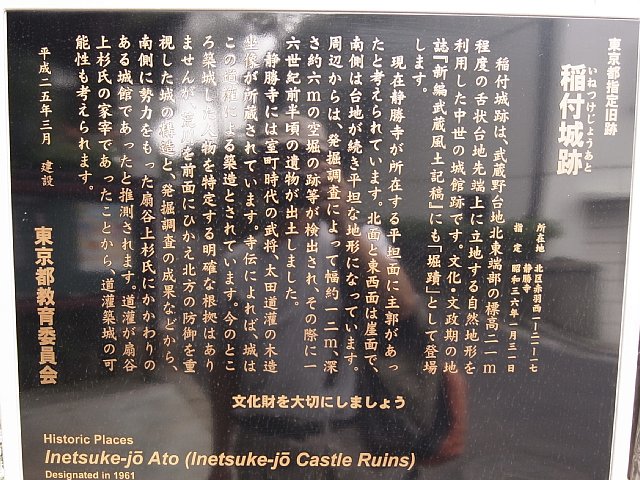 東京都指定旧跡
稲付城跡
いねつけじょうあと
所在地 北区赤羽西一-二一-一七
静勝寺
指定 昭和三六年一月三一日
稲付城跡は、武蔵野台地北東端部の標高二一m
程度の舌状台地先端上に立地する自然地形を
利用した中世の城館跡です。文化・文政期の地
誌『新編武蔵風土記稿』にも「堀蹟」として登場
します。
現在静勝寺が所在する平坦面に主郭があっ
たと考えられています。北面と東西面は崖面で、
南側は台地が続き平坦な地形になっています。
周辺からは、発掘調査によって幅約一二m、深
さ約六mの空堀の跡等が検出され、その際に一
六世紀前半頃の遺物が出土しました。
静勝寺には室町時代の武将、太田道灌の木造
坐像が所蔵されています。寺伝によれば、城は
この道灌による築造とされています。今のとこ
ろ築城した人物を特定する明確な根拠はあり
ませんが、荒川を前面にひかえ北方の防御を重
視した城の構造と、発掘調査の成果などから、
南側に勢力をもった扇谷上杉氏にかかわりの
ある城館であったと推測されます。道灌が扇谷
上杉氏の家宰であったことから、道灌築城の可
能性も考えられます。
平成二五年三月 建設
東京都教育委員会
文化財を大切にしましょう
Historic Places
Inetsuke-jō Ato (Inetsuke-jō Castle Ruins)
Designated in 1961